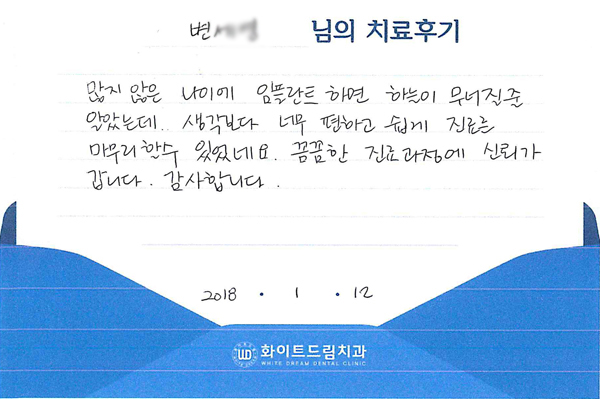 변 님의 치료후기
많지 않은 나이에 임플란트 하면 하늘이 무너질줄
알았는데.. 생각보다 너무 편하고 쉽게 진료를
마무리 할수 있었네요. 꼼꼼한 진료과정에 신뢰가
갑니다. 감사합니다.
2018 · 1 · 12
WD 화이트드림치과
WHITE DREAM DENTAL CLINIC